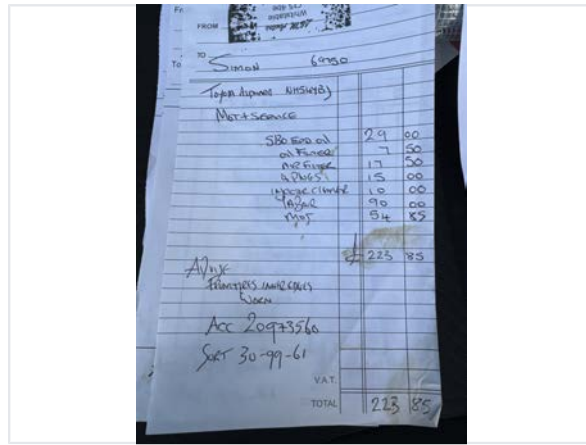 Fr
FROM
TO
To
Simon 69750
Toyota
MOT + Service
29 00
oil Filter 7 50
Air Filter 17 50
4 Plugs 15 00
injector cleaner 10 00
Labour 90 00
MOT 54 85
£ 223 85
Advise
inner edges
Worn
Acc 20973560
Sort 30-99-61
V.A.T.
TOTAL 223 85